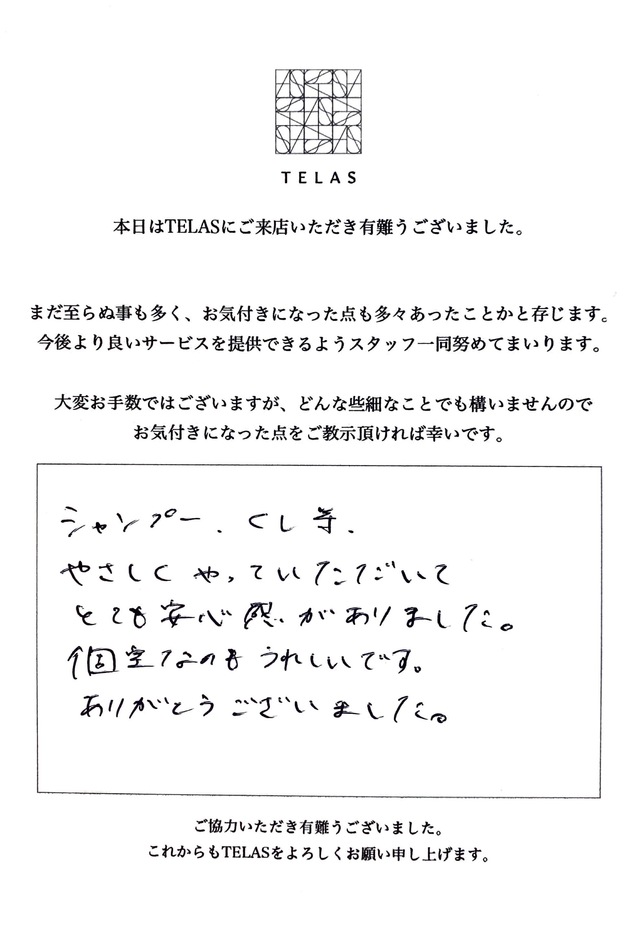 TELAS
本日はTELASにご来店いただき有難うございました。
まだ至らぬ事も多く、お気付きになった点も多々あったことかと存じます。
今後より良いサービスを提供できるようスタッフ一同努めてまいります。
大変お手数ではございますが、どんな些細なことでも構いませんので
お気付きになった点をご教示頂ければ幸いです。
シャンプー、くし等、
やさしくやっていただいて
とても安心感がありました。
個室なのもうれしいです。
ありがとうございました。
ご協力いただき有難うございました。
これからもTELASをよろしくお願い申し上げます。